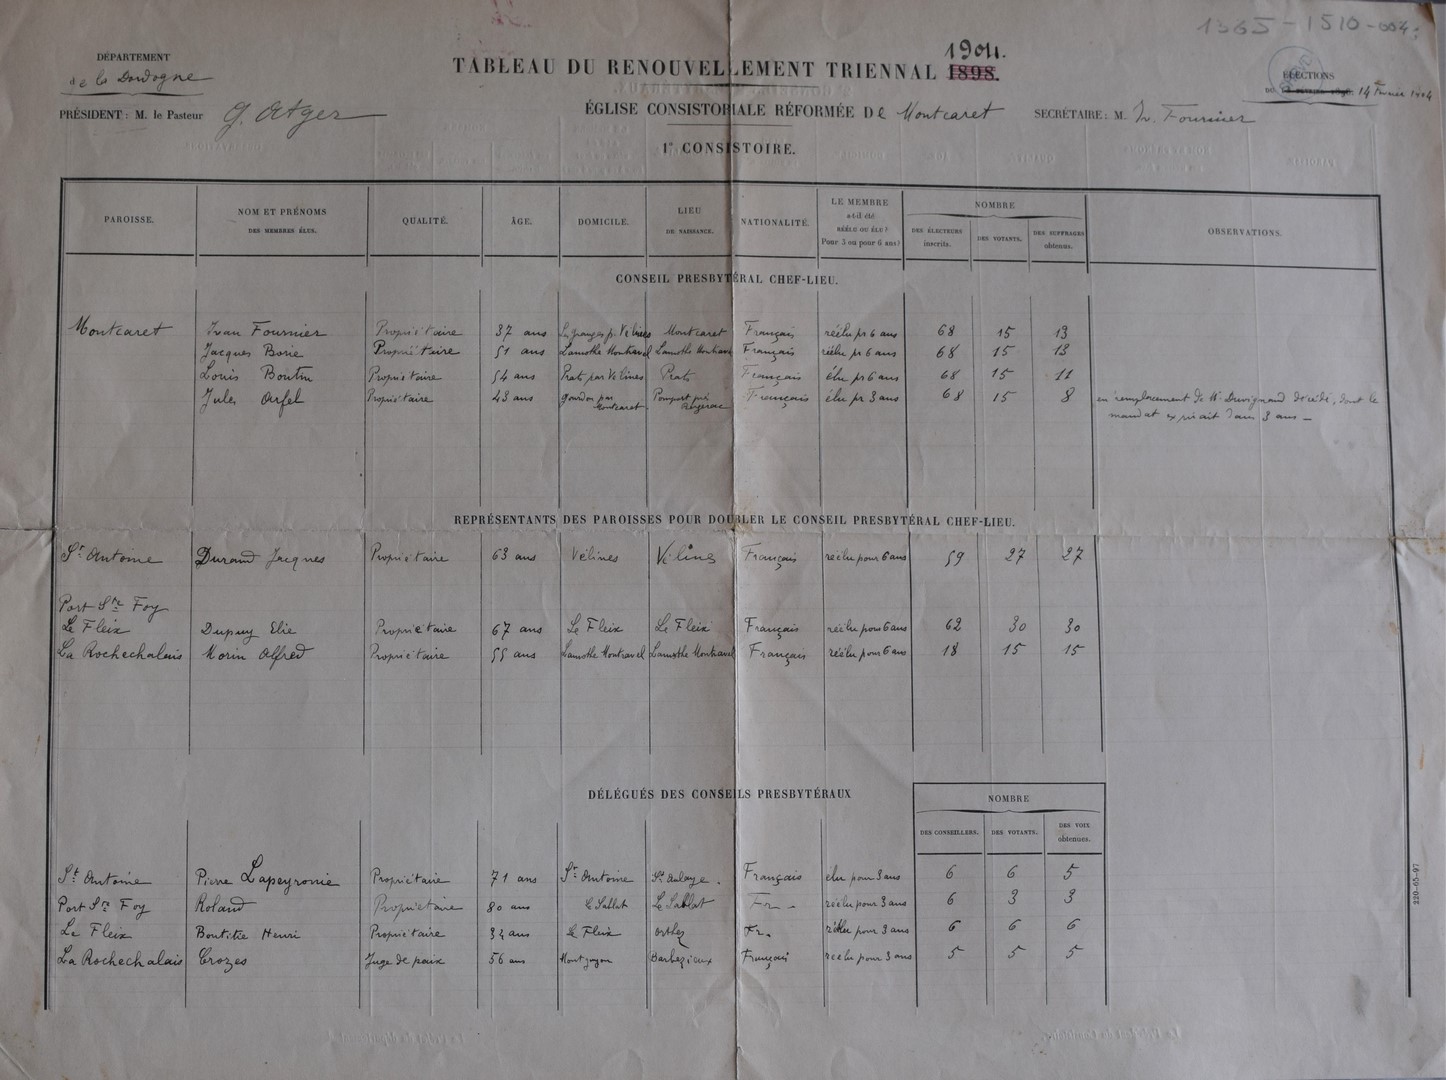 1365-1510-004
DÉPARTEMENT
de la Dordogne
TABLEAU DU RENOUVELLEMENT TRIENNAL 1898. 1904.
ÉLECTIONS
DU 14 Février 1904
PRÉSIDENT : M. le Pasteur G. Atger
ÉGLISE CONSISTORIALE RÉFORMÉE De Montcaret
SECRÉTAIRE : M. Fournier
1° CONSISTOIRE.
PAROISSE.
NOM ET PRÉNOMS
DES MEMBRES ÉLUS.
QUALITÉ.
ÂGE.
DOMICILE.
LIEU
DE NAISSANCE.
NATIONALITÉ.
LE MEMBRE
a-t-il été
RÉÉLU OU ÉLU ?
Pour 3 ou pour 6 ans ?
NOMBRE
DES ÉLECTEURS
inscrits.
DES VOTANTS.
DES SUFFRAGES
obtenus.
OBSERVATIONS.
CONSEIL PRESBYTÉRAL CHEF-LIEU.
Montcaret Ivan Fournier Propriétaire 37 ans Vélines Montcaret Français réélu pr 6 ans 68 15 13
Jacques Borie Propriétaire 51 ans Lamothe Montravel Lamothe Montravel Français réélu pr 6 ans 68 15 13
Louis Boutin Propriétaire 54 ans Prats par Vélines Prats Français élu pr 6 ans 68 15 11
Jules Propriétaire 43 ans Gourdon par Montcaret Pomport près Bergerac Français élu pr 3 ans 68 15 8 en remplacement de Mr Duvignaud décédé, dont le
mandat expirait dans 3 ans —
REPRÉSENTANTS DES PAROISSES POUR DOUBLER LE CONSEIL PRESBYTÉRAL CHEF-LIEU.
St Antoine Durand Jacques Propriétaire 63 ans Vélines Vélines Français réélu pour 6 ans 59 27 27
Port Ste Foy
Le Fleix Dupuy Elie Propriétaire 67 ans Le Fleix Le Fleix Français réélu pour 6 ans 62 30 30
La Rochechalais Morin Alfred Propriétaire 55 ans Lamothe Montravel Lamothe Montravel Français réélu pour 6 ans 18 15 15
DÉLÉGUÉS DES CONSEILS PRESBYTÉRAUX
NOMBRE
DES CONSEILLERS.
DES VOTANTS.
DES VOIX
obtenues.
St Antoine Pierre Lapeyronie Propriétaire 71 ans St Antoine St Aulaye. Français élu pour 3 ans 6 6 5
Port Ste Foy Roland Propriétaire 80 ans Le Sablat Le Sablat Fr - réélu pour 3 ans 6 3 3
Le Fleix Boutitie Henri Propriétaire 34 ans Le Fleix Orthez Fr. réélu pour 3 ans 6 6 6
La Rochechalais Crozes Juge de paix 56 ans Montguyon Barbezieux Français réélu pour 3 ans 5 5 5
220-65-97